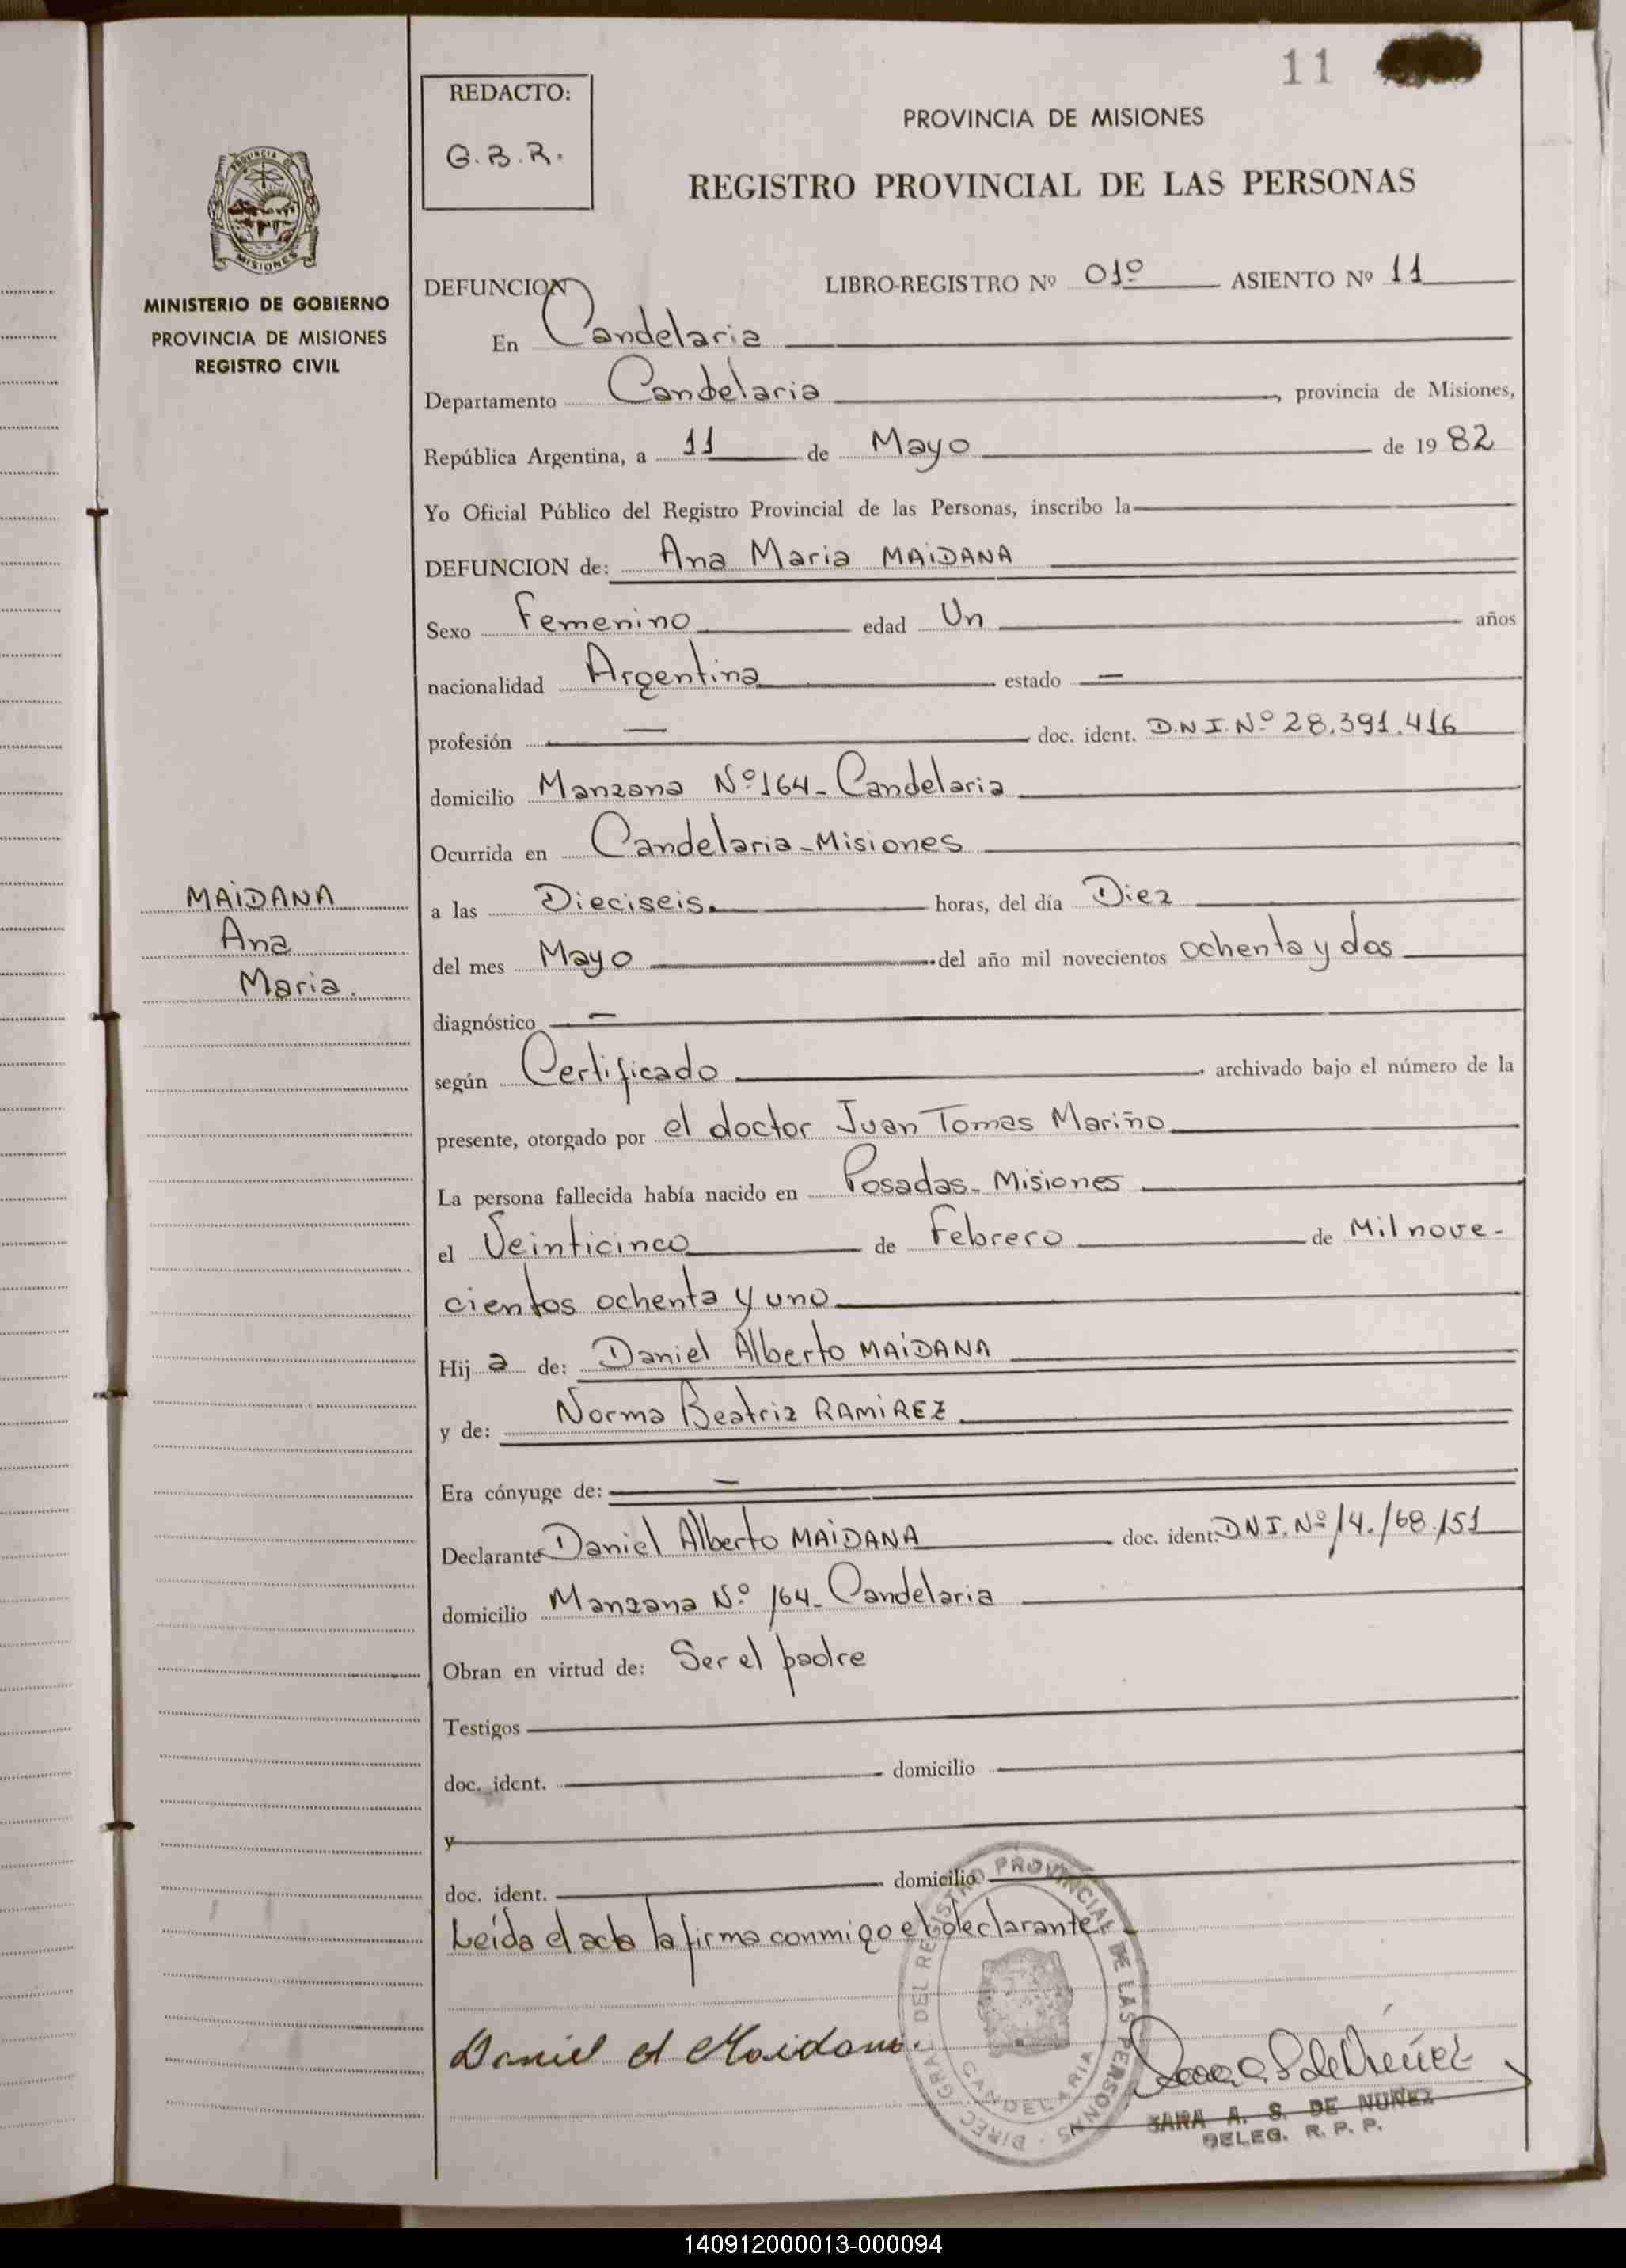 11
REDACTO:
G.B.R.
PROVINCIA DE MISIONES
REGISTRO PROVINCIAL DE LAS PERSONAS
PROVINCIA DE
MISIONES
MINISTERIO DE GOBIERNO
PROVINCIA DE MISIONES
REGISTRO CIVIL
DEFUNCION LIBRO-REGISTRO Nº 01º ASIENTO Nº 11
En Candelaria
Departamento Candelaria, provincia de Misiones,
República Argentina, a 11 de Mayo de 1982
Yo Oficial Público del Registro Provincial de las Personas, inscribo la
DEFUNCION de: Ana Maria MAiDANA
Sexo Femenino edad Un años
nacionalidad Argentina estado —
profesión — doc. ident. D.N.I. Nº 28.391.416
domicilio Manzana Nº 164- Candelaria
Ocurrida en Candelaria-Misiones
MAiDANA
Ana
Maria.
a las Dieciseis. horas, del día Diez
del mes Mayo del año mil novecientos ochenta y dos
diagnóstico —
según Certificado archivado bajo el número de la
presente, otorgado por el doctor Juan Tomas Mariño
La persona fallecida había nacido en Posadas- Misiones
el Veinticinco de Febrero de Mil nove-
cientos ochenta y uno
Hija de: Daniel Alberto MAiDANA
y de: Norma Beatriz RAMiREZ
Era cónyuge de: —
Declarante Daniel Alberto MAiDANA doc. ident. D.N.I. Nº 14.168.151
domicilio Manzana Nº 164- Candelaria
Obran en virtud de: Ser el padre
Testigos
doc. ident. domicilio
y
doc. ident. domicilio
Leída el acta la firma conmigo el declarante-
DIREC. GRAL. DEL REGISTRO PROVINCIAL DE LAS PERSONAS
CANDELARIA
Daniel A Maidana.
SARA A. S. DE NUÑEZ
DELEG. R. P. P.
140912000013-000094